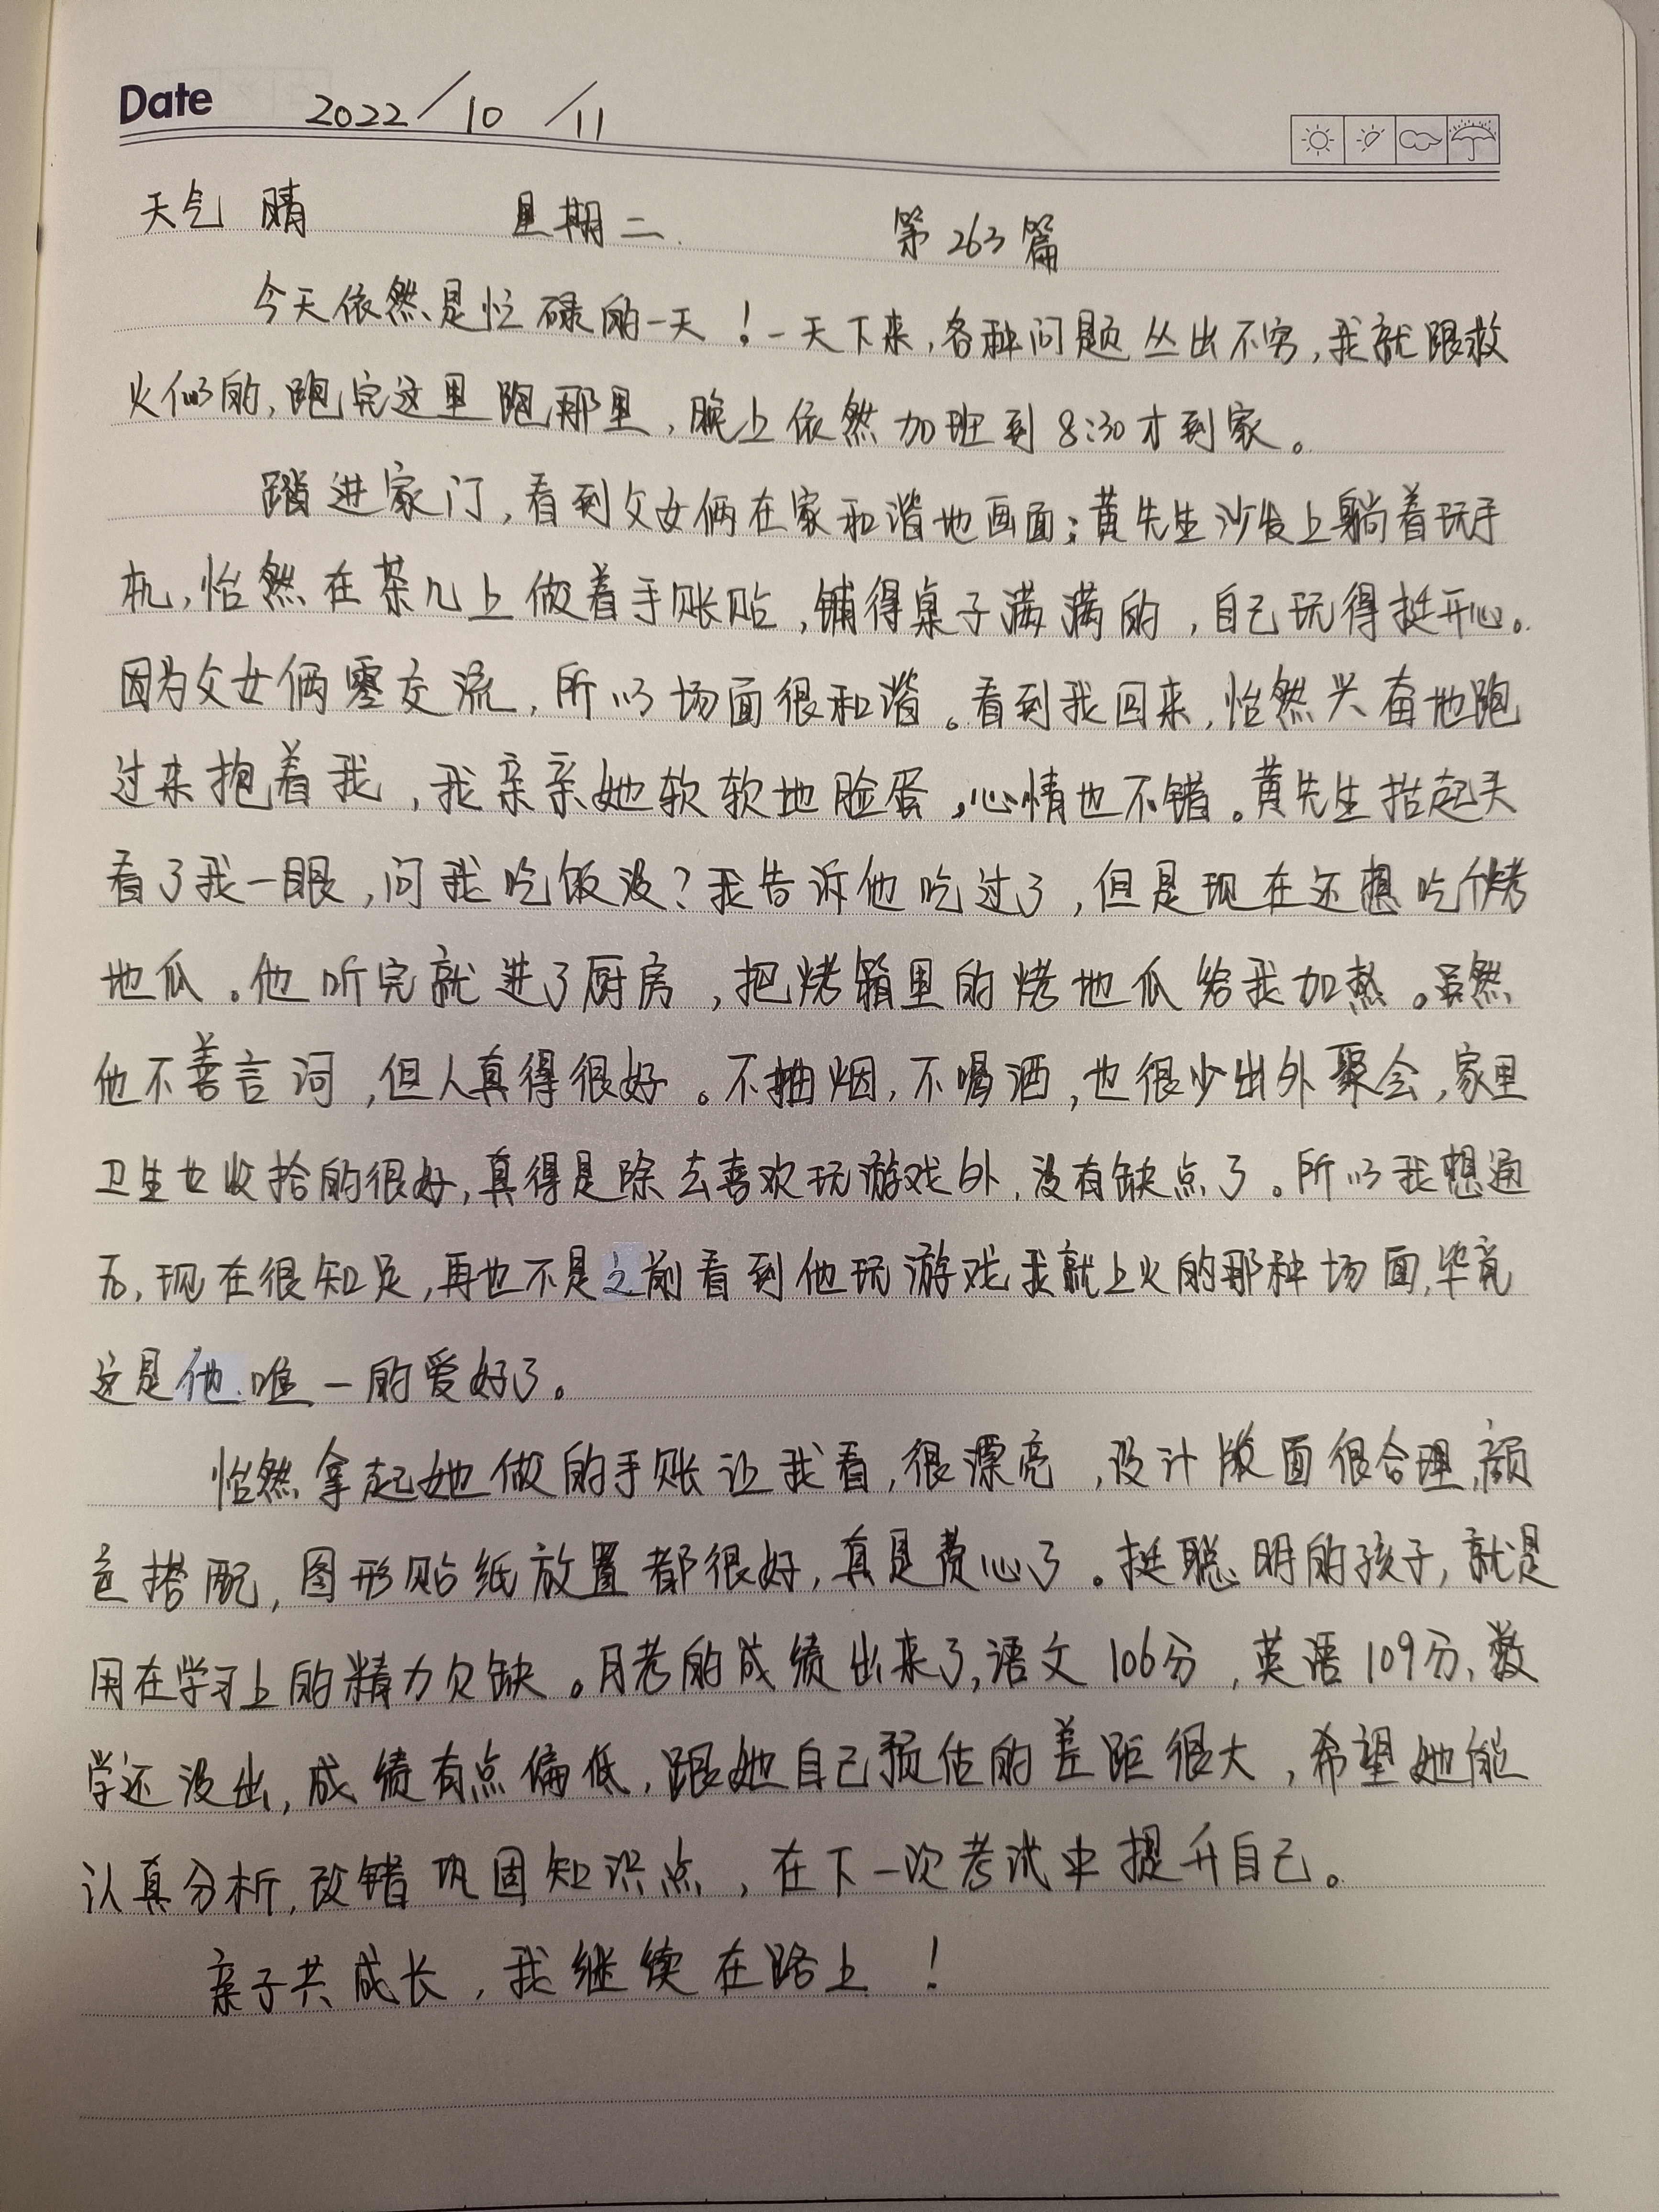 Date 2022/10/11
天气 晴 星期二 第263篇
今天依然是忙碌的一天！一天下来,各种问题丛出不穷,我就跟救
火似的,跑完这里跑那里,晚上依然加班到8:30才到家。
踏进家门,看到父女俩在家和谐地画面;黄先生沙发上躺着玩手
机,怡然在茶几上做着手账贴,铺得桌子满满的,自己玩得挺开心。
因为父女俩零交流,所以场面很和谐。看到我回来,怡然兴奋地跑
过来抱着我,我亲亲她软软地脸蛋,心情也不错。黄先生抬起头
看了我一眼,问我吃饭没?我告诉他吃过了,但是现在还想吃个烤
地瓜。他听完就进了厨房,把烤箱里的烤地瓜给我加热。虽然
他不善言词,但人真得很好。不抽烟,不喝酒,也很少出外聚会,家里
卫生也收拾的很好,真得是除去喜欢玩游戏外,没有缺点了。所以我想通
后,现在很知足,再也不是之前看到他玩游戏我就上火的那种场面,毕竟
这是他唯一的爱好了。
怡然拿起她做的手账让我看,很漂亮,设计版面很合理,颜
色搭配,图形贴纸放置都很好,真是费心了。挺聪明的孩子,就是
用在学习上的精力欠缺。月考的成绩出来了,语文106分,英语109分,数
学还没出,成绩有点偏低,跟她自己预估的差距很大,希望她能
认真分析,改错巩固知识点,在下一次考试中提升自己。
亲子共成长,我继续在路上！